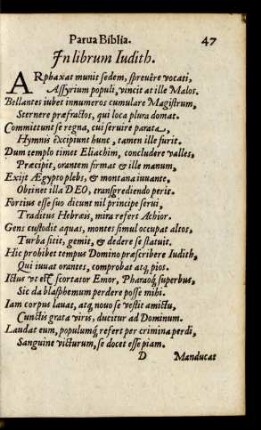 Parua Biblia. 47
In librum Iudith.
ARphaxat munit sedem, spreuêre vocati,
Assyrium populi, vincit at ille Malos.
Bellantes iubet innumeros cumulare Magistrum,
Sternere præfractos, qui loca plura domat.
Committunt se regna, cui seruire parata,
Hymnis excipiunt hunc, tamen ille furit.
Dum templo timet Eliachim, concludere valles,
Præcipit, orantem firmat & ille manum,
Exijt Ægypto plebs, & montana iuuante,
Obtinet illa DEO, transgrediendo perit.
Fortius esse suo dicunt nil principe serui,
Traditus Hebræis, mira refert Achior.
Gens custodit aquas, montes simul occupat altos,
Turba sitit, gemit, & dedere se statuit.
Hic prohibet tempus Domino præscribere Iudith,
Qui iuuat orantes, comprobat atq; pios.
Ictus vt est scortator Emor, Pharaoq; superbus,
Sic da blasphemum perdere posse mihi.
Iam corpus lauat, atq; nouo se vestit amictu,
Cunctis grata viris, ducitur ad Dominum.
Laudat eum, populumq; refert per crimina perdi,
Sanguine victurum, se docet esse piam.
D Manducat